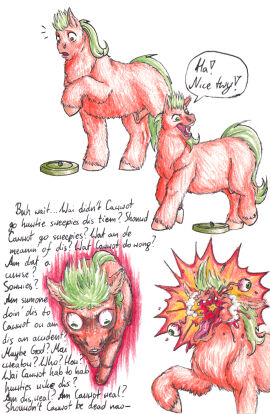 Ha!
Nice twy!
Buh wait... Wai didn't Cawwot
go huwtie sweepies dis tiem? Shouwd
Cawwot go sweepies? Wat am de
meanin of dis? Wat Cawwot do wong?
Am dat a
cuwse?
Sowwies?
Am sumone
doin' dis to
Cawwot ou am
dis an accident?
Maybe God? Mai
cweatow? Who? How?
Wai Cawwot hab to hab
huwties wike dis?
Am dis weal? Am Cawwot weal?
Shouwdn't Cawwot be dead naw—